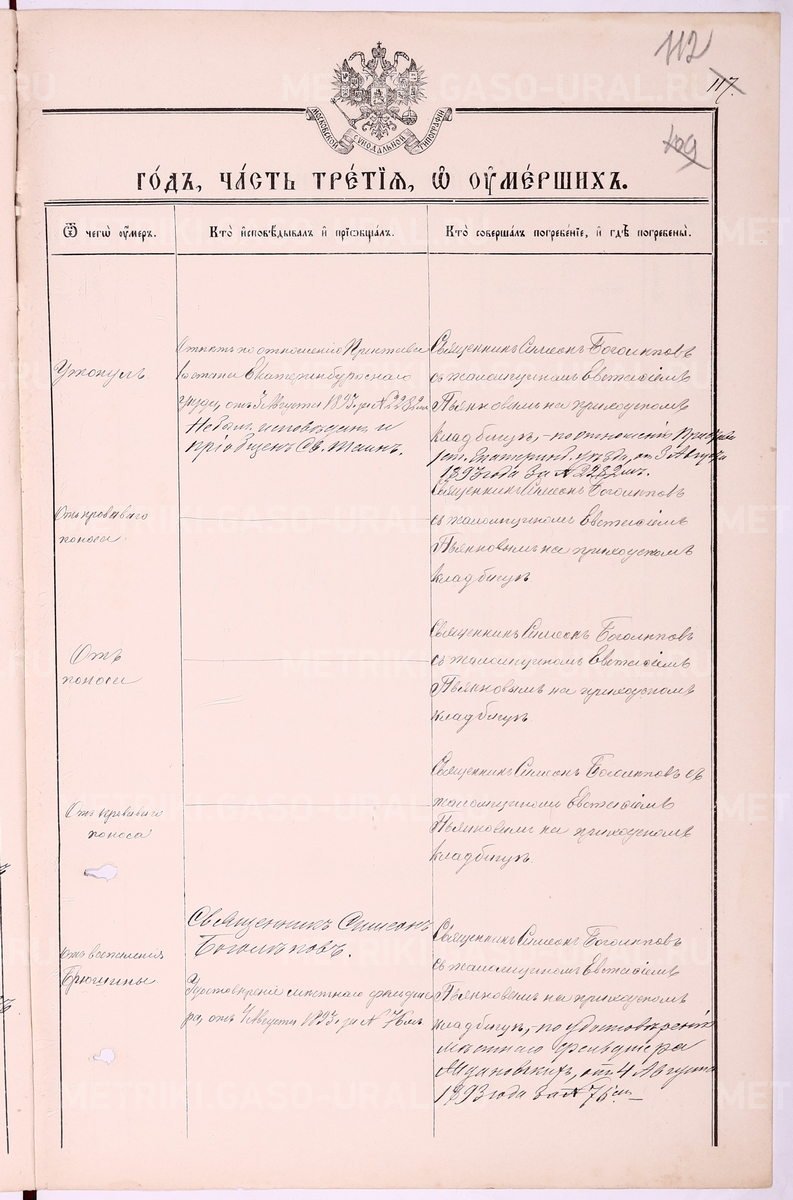 112
117.
109
МОСКОВСКОЙ СѴНОДАЛЬНОЙ ТИПОГРАФІИ
ГО́ДЪ, ЧА́СТЬ ТРЕ́ТІЯ, Ѡ ОУМЕ́РШИХЪ.
Ѿ чегѡ̀ оу́меръ.
Кто̀ и҆сповѣ́дывалъ и҆ прїѡбща́лъ.
Кто̀ соверша́лъ погребе́нїе, и҆ гдѣ̀ погребены̀.
Утонулъ
по отношенію Пристава
Екатеринбургскаго
отъ 3 Августа 1893 г. за № 2282мъ
Небылъ исповѣданъ и
пріобщенъ Св. Таинъ.
Священникъ Симеонъ Боголѣповъ
съ псаломщикомъ Евстафіемъ
Пьянковымъ на приходскомъ
кладбищѣ, - по отношенію Пристава
1 ст. Екатеринб. уѣзда, отъ 3 Августа
1893 года за № 2282мъ.
Отъ кроваваго
поноса.
Священникъ Симеонъ Боголѣповъ
съ псаломщикомъ Евстафіемъ
Пьянковымъ на приходскомъ
кладбищѣ
Отъ
поноса
Священникъ Симеонъ Боголѣповъ
съ псаломщикомъ Евстафіемъ
Пьянковымъ на приходскомъ
кладбищѣ
Отъ кроваваго
поноса
Священникъ Симеонъ Боголѣповъ съ
псаломщикомъ Евстафіемъ
Пьянковымъ на приходскомъ
кладбищѣ
отъ воспаленія
Брюшины
Священникъ Симеонъ
Боголѣповъ.
Удостовѣреніе мѣстнаго фельдше
ра, отъ 4 Августа 1893 г. за № 76мъ
Священникъ Симеонъ Боголѣповъ
съ псаломщикомъ Евстафіемъ
Пьянковымъ на приходскомъ
кладбищѣ, - по удостовѣренію
мѣстнаго фельдшера
отъ 4 Августа
1893 года за № 76мъ. –
METRIKI.GASO-URAL.RU